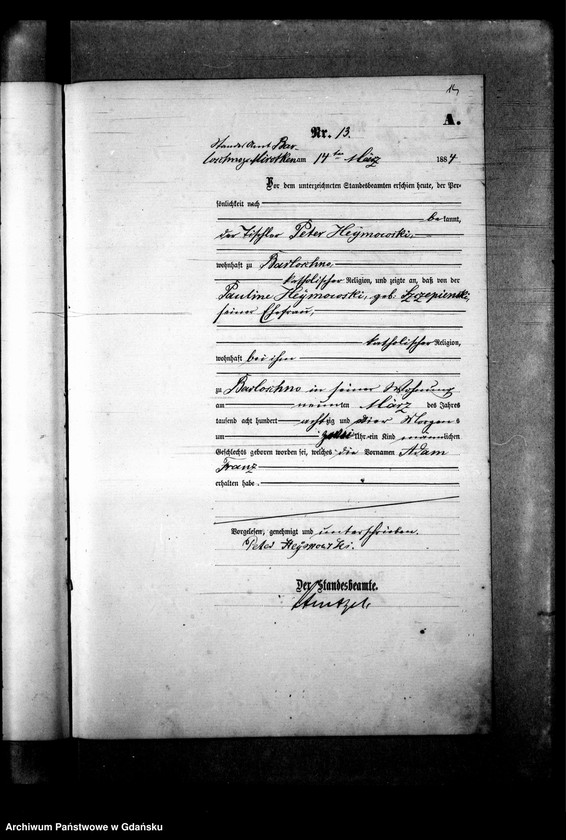 A.
Nr. 13.
Standes Amt Bar-
am 14ten März 1884
Vor dem unterzeichneten Standesbeamten erschien heute, der Per-
sönlichkeit nach
bekannt,
der Tischler Peter Heymowski,
wohnhaft zu Barloschno,
katholischer Religion, und zeigte an, daß von der
Pauline Heymowski, geb. Szczepienski,
seiner Ehefrau,
katholischer Religion,
wohnhaft bei ihm
zu Barloschno in seiner Wohnung
am neunten März des Jahres
tausend acht hundert achtzig und vier Morgens
um Uhr ein Kind männlichen
Geschlechts geboren worden sei, welches die Vornamen Adam
Franz
erhalten habe.
Vorgelesen, genehmigt und unterschrieben.
Peter Heymowski.
Der Standesbeamte.
Archiwum Państwowe w Gdańsku